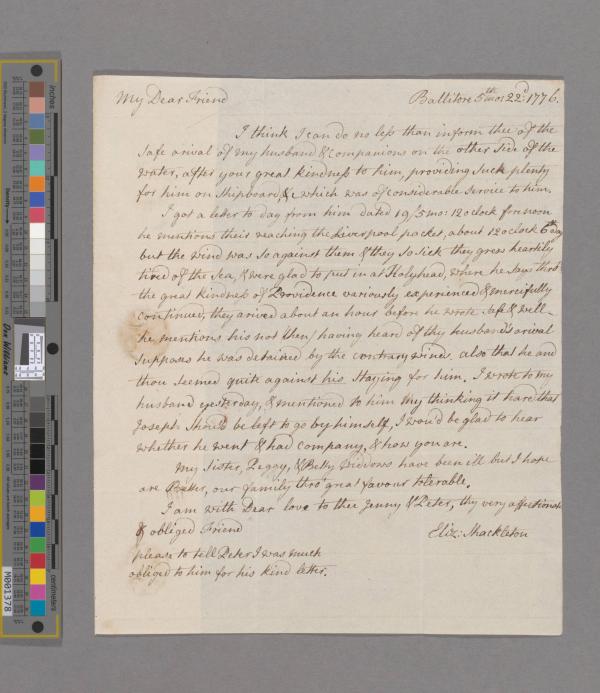 My Dear Friend
Ballitore 5th mo: 22d: 1776.
I think I can do no less than inform thee of the
safe arival of my husband & companions on the other side of the
water, after your great kindness to him, providing such plenty
for him on Shipboard, & which was of considerable service to him.
I got a letter to day from him dated 19/5 mo: 12 oclock forenoon
he mentions their reaching the Liverpool packet, about 12 oclock 6th day
but the wind was so against them & they so sick they grew heartily
tired of the Sea, & were glad to put in at Holyhead, where he says thro'
the great kindness of Providence variously experienced & mercifully
continued, they arived about an hour before he wrote safe & well—
he mentions his not (then) having heard of thy husband's arival
supposes he was detained by the contrary winds. also that he and
thou seemed quite against his staying for him. I wrote to my
husband yesterday, & mentioned to him my thinking it hard that
Joseph should be left to go by himself, I wou'd be glad to hear
whether he went & had company, & how you are.
My Sister, Peggy, & Betty Widdows have been ill but I hope
are better, our family thro' great favour tolerable.
I am with Dear love to thee Jenny & Peter, thy very affectionate
& obliged Friend
Eliz: Shackleton
please to tell Peter I was much
obliged to him for his kind letter.
inches
centimeters
Don Williams
M001378